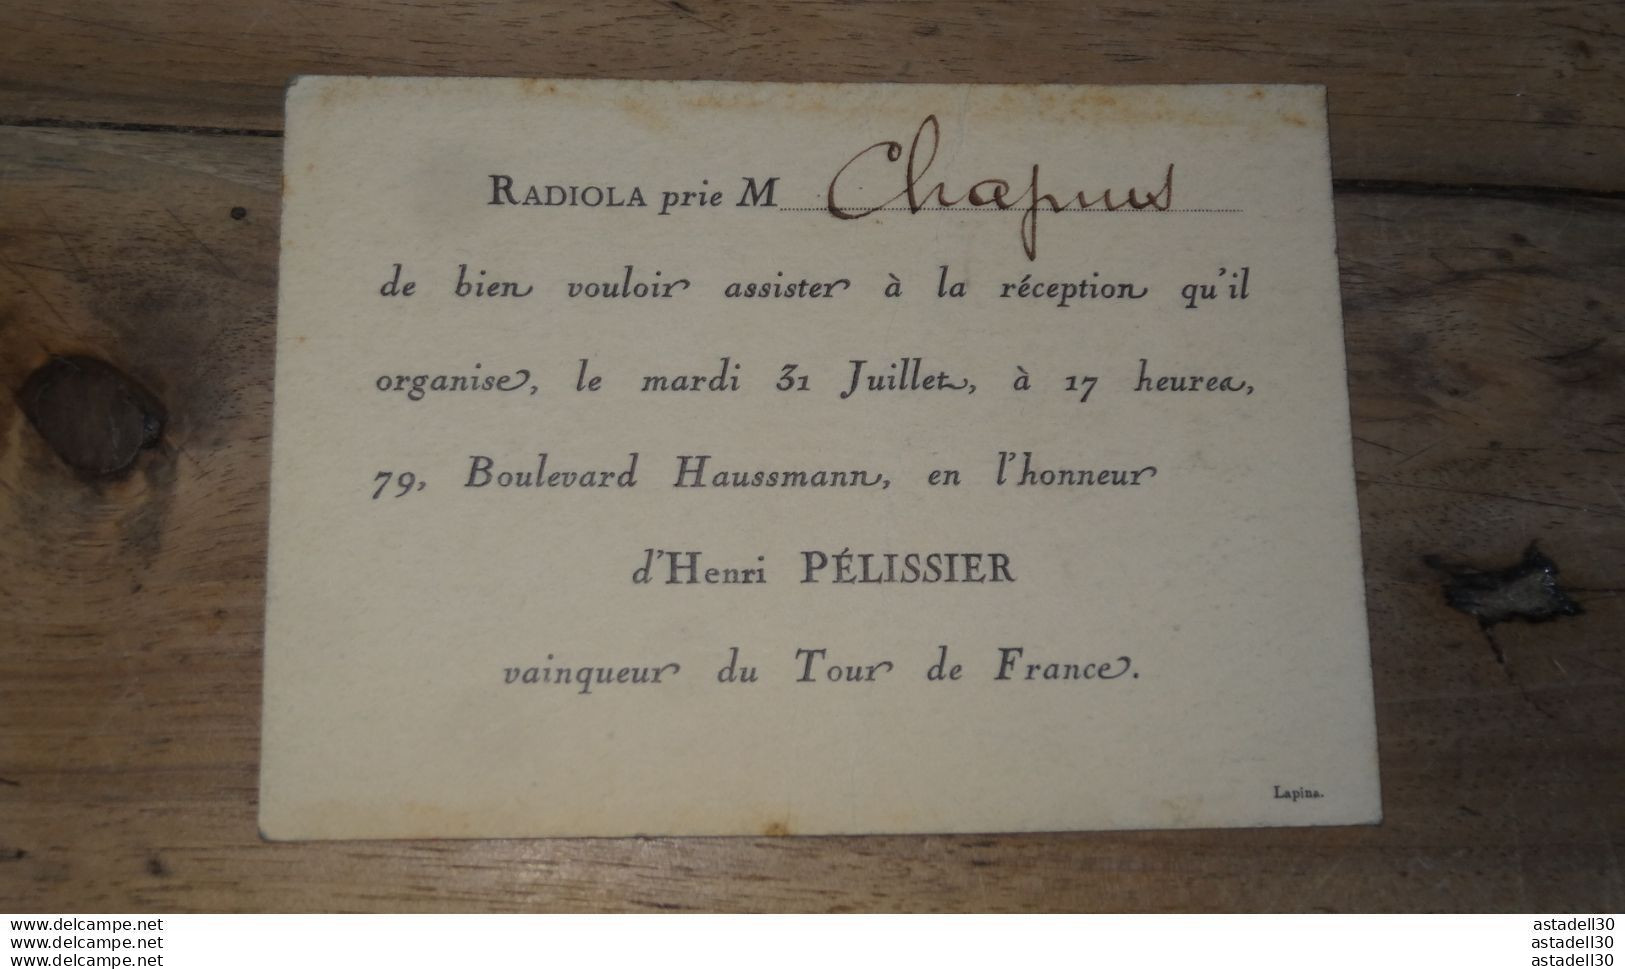 RADIOLA prie M Chapuis
de bien vouloir assister à la réception qu'il
organise, le mardi 31 Juillet, à 17 heures,
79, Boulevard Haussmann, en l'honneur
d'Henri PÉLISSIER
vainqueur du Tour de France.
Lapina.
www.delcampe.net
www.delcampe.net
www.delcampe.net
astadell30
astadell30
astadell30